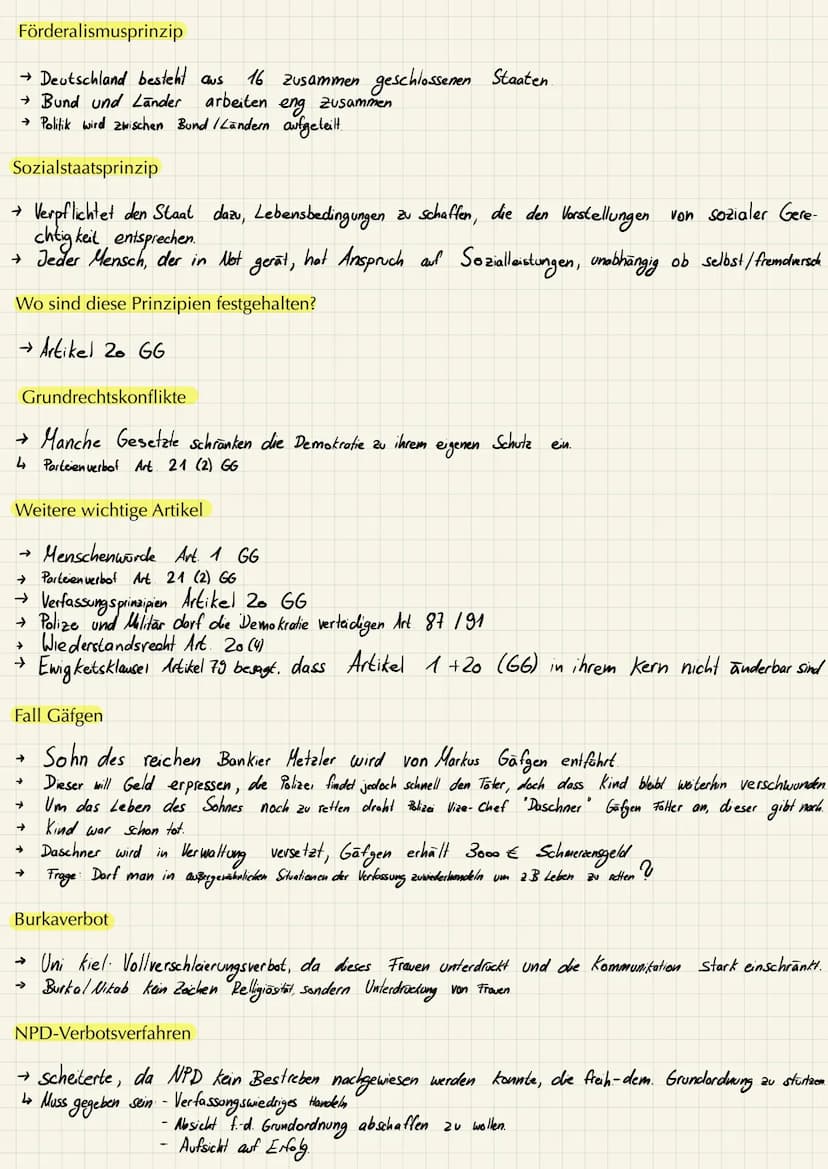 Förderalismusprinzip
→ Deutschland besteht aus 16 zusammen geschlossenen Staaten
→ Bund und Länder arbeiten eng zusammen
→ Politik wird zwischen Bund/Ländern aufgeteilt
Sozialstaatsprinzip
→ Verpflichtet den Staat dazu, Lebensbedingungen zu schaffen, die den Vorstellungen von sozialer Gere-
chtigkeit entsprechen.
→ Jeder Mensch, der in Not gerät, hat Anspruch auf Sozialleistungen, unabhängig ob selbst/fremdversch
Wo sind diese Prinzipien festgehalten?
→ Artikel 20 GG
Grundrechtskonflikte
→ Manche Gesetzte schränken die Demokratie zu ihrem eigenen Schutz ein.
↳ Parteienverbot Art. 21 (2) GG
Weitere wichtige Artikel
→ Menschenwürde Art. 1 GG
→ Parteienverbot Art. 21 (2) GG
→ Verfassungsprinzipien Artikel 20 GG
→ Polize und Militär darf die Demokratie verteidigen Art 87 / 91
→ Wiederstandsrecht Art. 20 (4)
→ Ewigketsklausel Artikel 79 besagt, dass Artikel 1 + 20 (GG) in ihrem Kern nicht änderbar sind
Fall Gäfgen
→ Sohn des reichen Bankier Metzler wird von Markus Gäfgen entführt.
→ Dieser will Geld erpressen, die Polizei findet jedoch schnell den Täter, doch dass Kind bleibt weiterhin verschwunden.
→ Um das Leben des Sohnes noch zu retten droht Polizei Vize-Chef "Daschner" Gäfgen Folter an, dieser gibt nach.
→ Kind war schon tot.
→ Daschner wird in Verwaltung versetzt, Gäfgen erhält 3000 € Schmerzensgeld
→ Frage: Darf man in außergewöhnlichen Situationen der Verfassung zuwiederhandeln um z B Leben zu retten?
Burkaverbot
→ Uni Kiel: Vollverschleierungsverbot, da dieses Frauen unterdrückt und die Kommunikation stark einschränkt.
→ Burka/Nikab kein Zeichen Relligiösität, sondern Unterdrückung von Frauen
NPD-Verbotsverfahren
→ scheiterte, da NPD kein Bestreben nachgewiesen werden konnte, die freih-dem. Grundordnung zu stürtzen.
↳ Muss gegeben sein: - Verfassungswiedriges Handeln
- Absicht f.-d. Grundordnung abschaffen zu wollen.
- Aufsicht auf Erfolg.